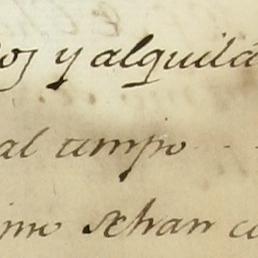 os y alquila
al tiempo
imo se han co